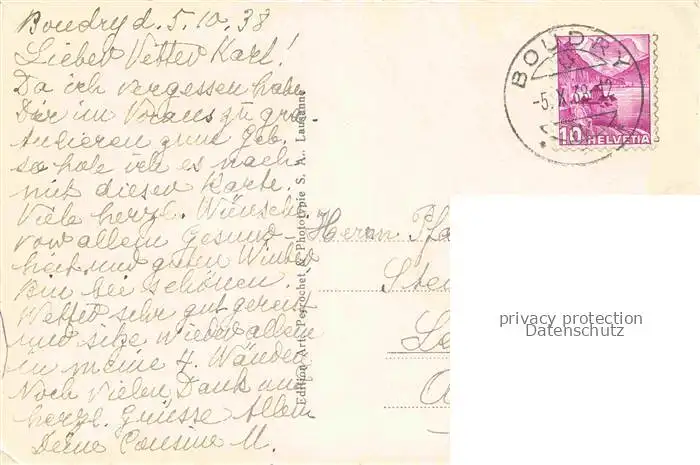 Boudry d. 5.10.38
Lieber Vetter Karl!
Da ich vergessen habe
Dir im Voraus zu gra-
tulieren zum Geb.
so hole ich es nach
mit dieser Karte.
Viele herzl. Wünsche
vor allem Gesund-
heit und guten Winter
Bin bei schönem
Wetter sehr gut gereist
und sitze wieder allein
in meine 4. Wänden
Noch vielen Dank und
herzl. Grüsse Allen
Deine Cousine M.
Edition Art. Perrochet & Phototypie S. A., Lausanne
BOUDRY
-5.X.38-12
10 HELVETIA
Herrn
privacy protection
Datenschutz